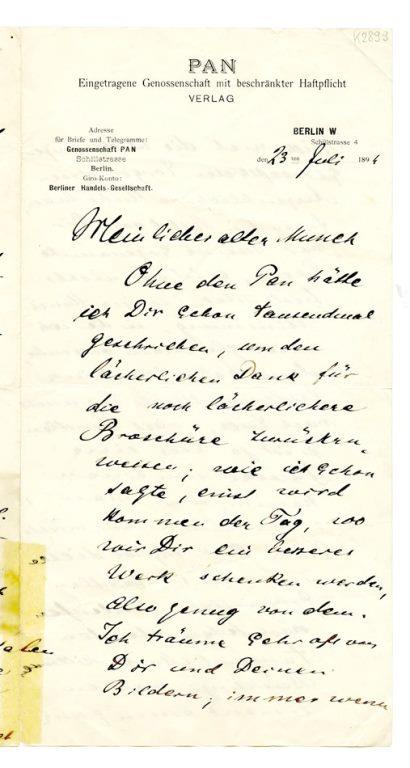 K2893
PAN
Eingetragene Genossenschaft mit beschränkter Haftpflicht
VERLAG
Adresse
für Briefe und Telegramme:
Genossenschaft PAN
Schillstrasse
Berlin.
Giro-Konto:
Berliner Handels-Gesellschaft.
BERLIN W
Schillstrasse 4
den 23 ten Juli 1894
Mein lieber alter Munch
Ohne den Pan hätte
ich Dir schon tausendmal
geschrieben, um den
lächerlichen Dank für
die noch lächerlichere
Broschüre zurückzu„
weisen; wie ich schon
sagte, einst wird
kommen der Tag, wo
wir Dir ein besseres
Werk schenken werden,
Also genug von dem.
Ich träume sehr oft von
Dir und Deinen
Bildern; immer wenn